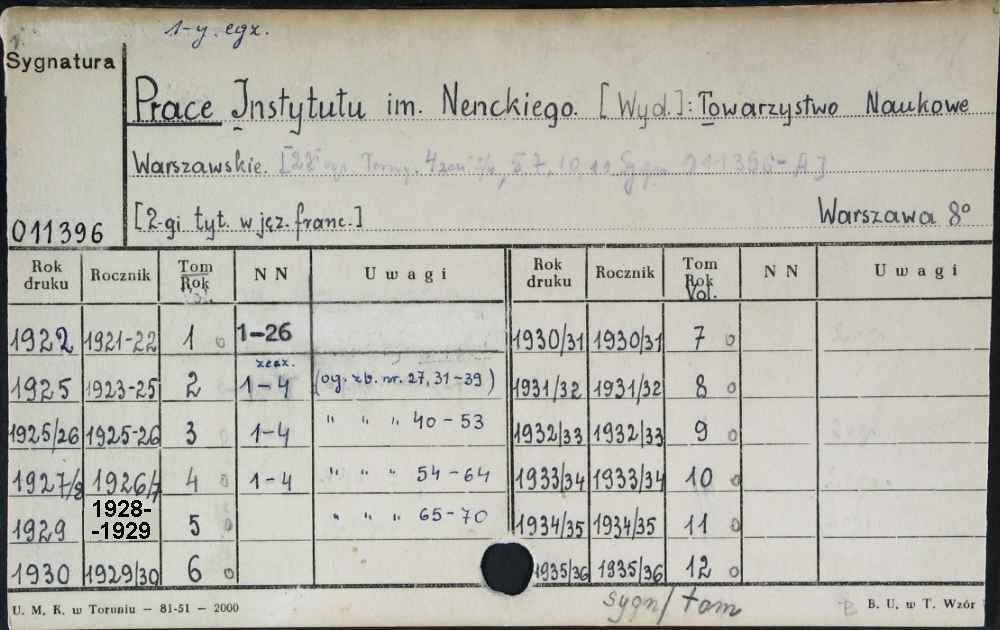 1-y. egz.
Sygnatura
Prace Instytutu im. Nenckiego. [Wyd.]: Towarzystwo Naukowe
Warszawskie.
[2-gi tyt. w jęz. franc.] Warszawa 8°
011396
Rok druku Rocznik Tom Rok Vol. NN Uwagi Rok druku Rocznik Tom Rok Vol. NN Uwagi
1922 1921-22 1 o 1-26 1930/31 1930/31 7 o
zesz.
1925 1923-25 2 1-4 (og. zb. nr. 27, 31-39) 1931/32 1931/32 8 o
1925/26 1925-26 3 1-4 " " " 40-53 1932/33 1932/33 9 o
1927/8 1926/7 4 o 1-4 " " " 54-64 1933/34 1933/34 10 o
1929 1928--1929 5 o " " " 65-70 1934/35 1934/35 11 o
1930 1929/30 6 o 1935/36 1935/36 12 o
sygn/tom
U. M. K. w Toruniu — 81-51 — 2000 B. U. w T. Wzór